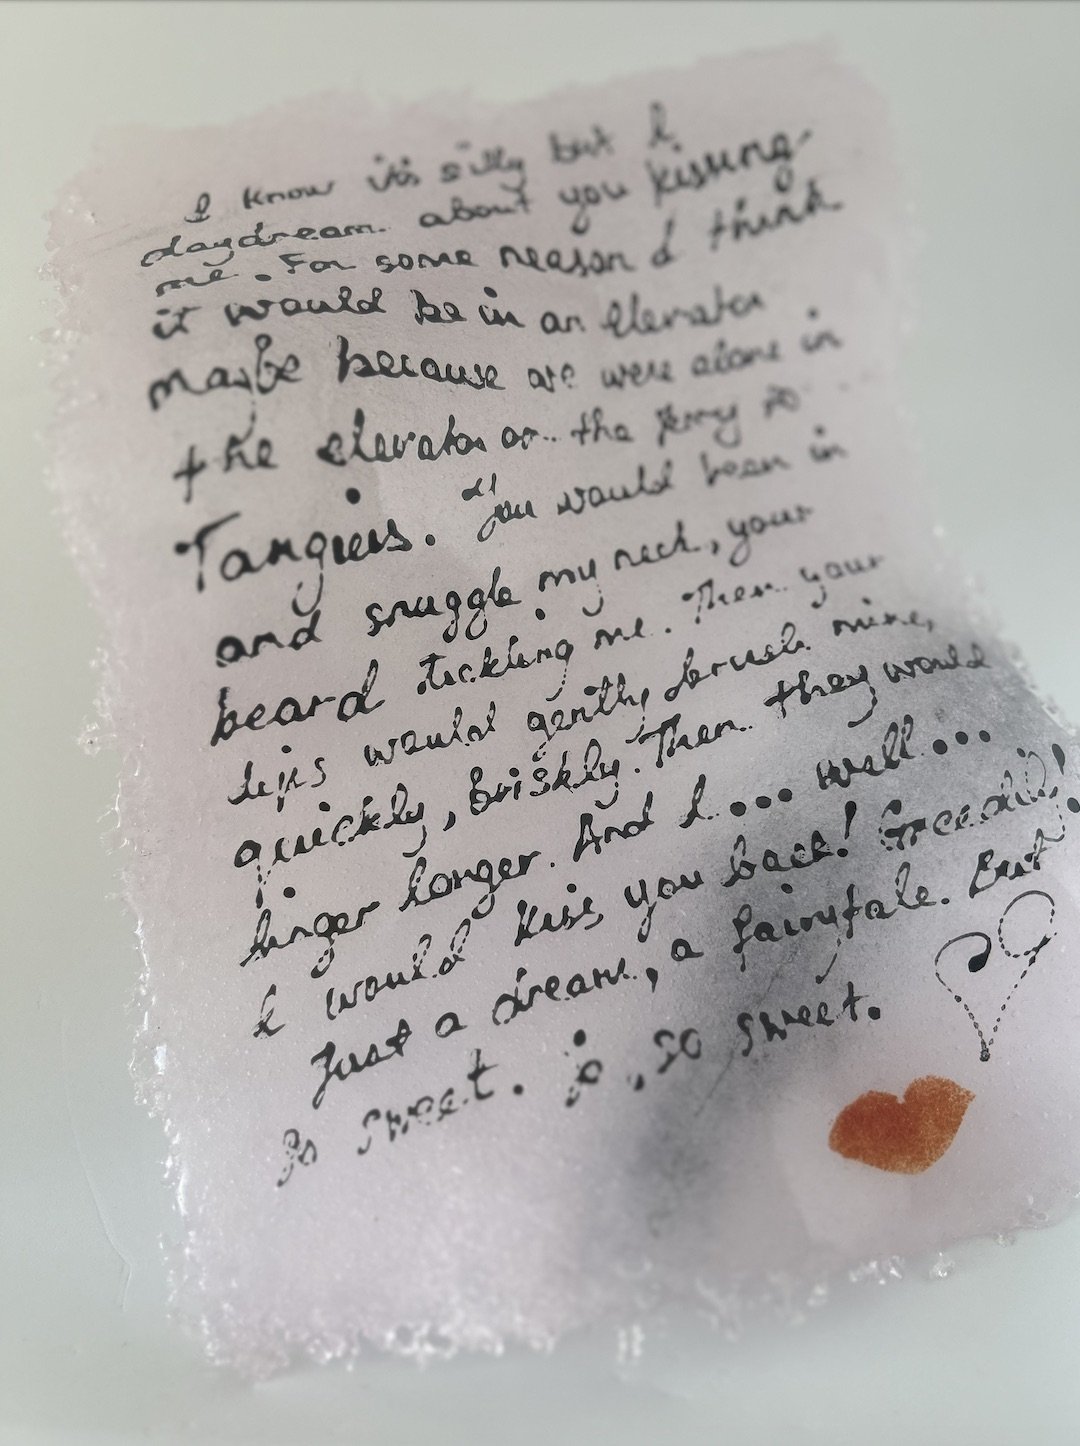 I know it's silly but I
daydream about you kissing
me. For some reason I think
it would be in an Elevator
maybe because we were alone in
the elevator on the ferry to
Tangiers. You would lean in
and snuggle my neck, your
beard tickling me. Then your
lips would gently brush mine,
quickly, briskly. Then they would
linger longer. And I ... well ...
I would kiss you back! Greedily!
Just a dream, a fairytale. But
so sweet. So, so sweet.